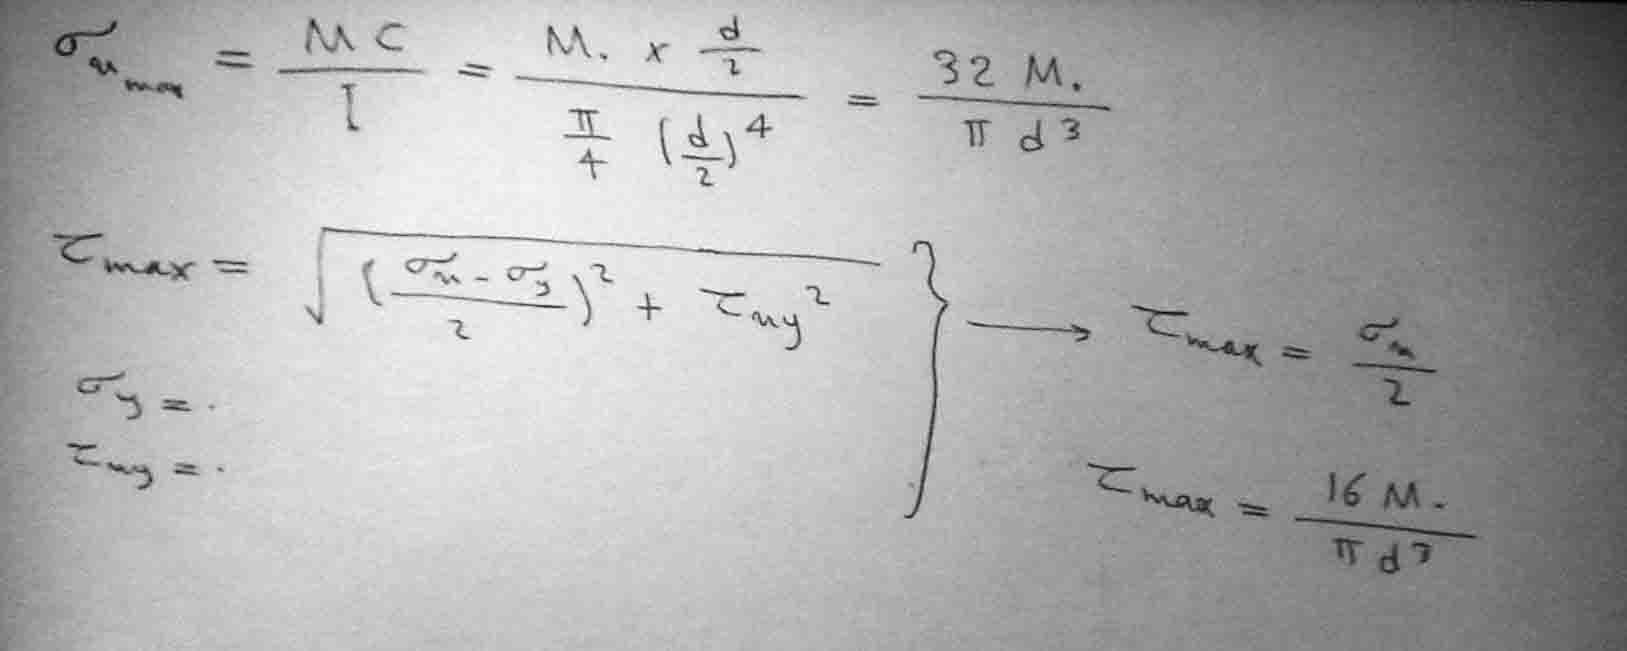 σ_x_max = MC / I = (M. × d/2) / (π/4 (d/2)^4) = 32 M. / π d^3
τ_max = √(((σ_x - σ_y) / 2)^2 + τ_xy^2) } → τ_max = σ_x / 2
σ_y = .
τ_xy = .
τ_max = 16 M. / π d^3